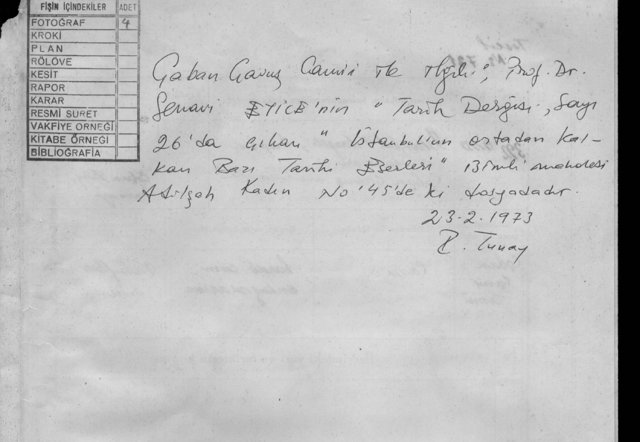 FİŞİN İÇİNDEKİLER ADET
FOTOĞRAF 4
KROKİ
PLAN
RÖLÖVE
KESİT
RAPOR
KARAR
RESMİ SURET
VAKFİYE ÖRNEĞİ
KİTABE ÖRNEĞİ
BİBLİOGRAFİA
Çaban Çavuş Camii ile ilgili, Prof. Dr.
Semavi EYİCE'nin " Tarih Dergisi, Sayı
26'da çıkan " İstanbulun ortadan Kal-
kan Bazı Tarihi Eserleri" isimli makalesi
Adilşah Kadın No '45'de ki dosyadadır.
23.2.1973
R. Tunay